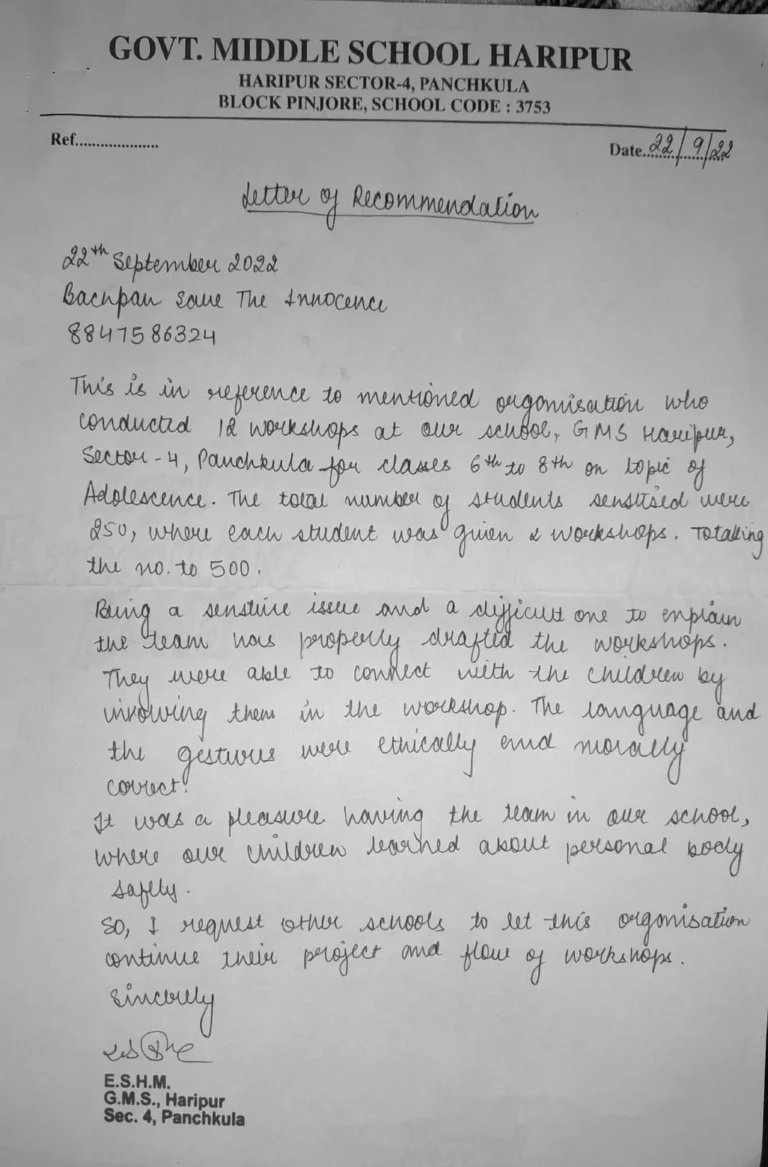 GOVT. MIDDLE SCHOOL HARIPUR
HARIPUR SECTOR-4, PANCHKULA
BLOCK PINJORE, SCHOOL CODE : 3753
Ref....................
Date 22/9/22
Letter of Recommendation
22th September 2022
Bachpan Save The Innocence
8847586324
This is in reference to mentioned organisation who
conducted 12 workshops at our school, GMS Haripur,
Sector-4, Panchkula for classes 6th to 8th on topic of
Adolescence. The total number of students sensitised were
250, where each student was given 2 workshops. Totalling
the no. to 500.
Being a sensitive issue and a difficult one to explain
the team has properly drafted the workshops.
They were able to connect with the children by
involving them in the workshop. The language and
the gestures were ethically and morally
correct.
It was a pleasure having the team in our school,
where our children learned about personal body
safety.
So, I request other schools to let this organisation
continue their project and flow of workshops.
Sincerely
E.S.H.M.
G.M.S., Haripur
Sec. 4, Panchkula